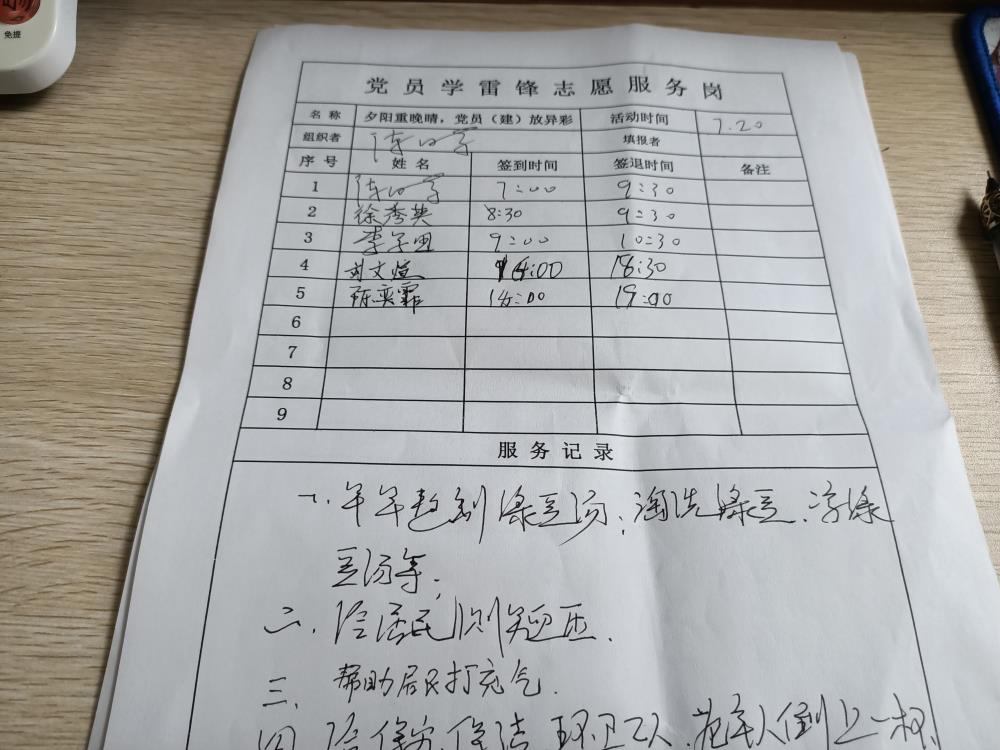 免提
党员学雷锋志愿服务岗
名称 夕阳重晚晴，党员（建）放异彩 活动时间 7.20
组织者 填报者
序号 姓名 签到时间 签退时间 备注
1 7:00 9:30
2 徐秀英 8:30 9:30
3 9:00 10:30
4 刘文煊 18:30
5 陈奕霏 19:00
6
7
8
9
服务记录
一、绿豆汤，淘洗绿豆、凉绿
豆汤等，
二、给居民测血压.
三、帮助居民打充气.
四、给保安、保洁、环卫工人、倒上一杯